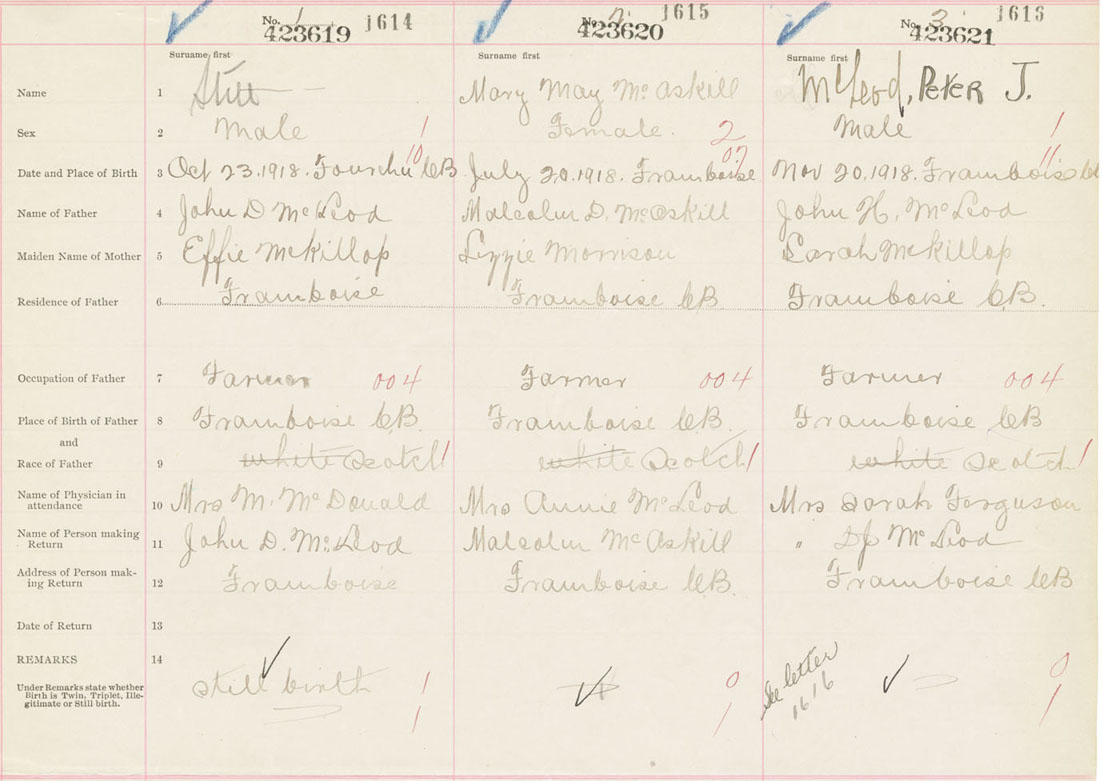 No. 1 1614 No. 2 1615 No. 3 1616
423619 423620 423621
Surname first Surname first Surname first
Name 1 Still Mary May McAskill McLeod, Peter J.
Sex 2 Male 1 Female. 2 Male 1
10 07 11
Date and Place of Birth 3 Oct 23.1918. Fourchu CB July 20.1918. Framboise Nov 20.1918. Framboise CB
Name of Father 4 John D McLeod Malcolm D. McAskill John H. McLeod
Maiden Name of Mother 5 Effie McKillop Lizzie Morrison Sarah McKillop
Residence of Father 6 Framboise Framboise CB Framboise CB.
Occupation of Father 7 Farmer 004 Farmer 004 Farmer 004
Place of Birth of Father 8 Framboise CB. Framboise CB. Framboise CB
and
Race of Father 9 white Scotch 1 white Scotch 1 white Scotch 1
Name of Physician in
attendance 10 Mrs M. McDonald Mrs Annie McLeod Mrs Sarah Ferguson
Name of Person making
Return 11 John D. McLeod Malcolm McAskill " McLeod
Address of Person mak-
ing Return 12 Framboise Framboise CB. Framboise CB
Date of Return 13
REMARKS 14
Under Remarks state whether
Birth is Twin, Triplet, Ille-
gitimate or Still birth.
still birth 1 0 See letter 0
1 1 1616 1